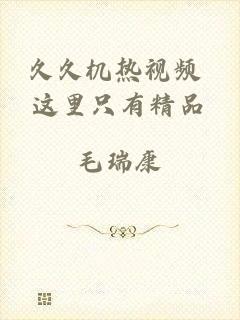 久久机热视频
这里只有精品
毛瑞康